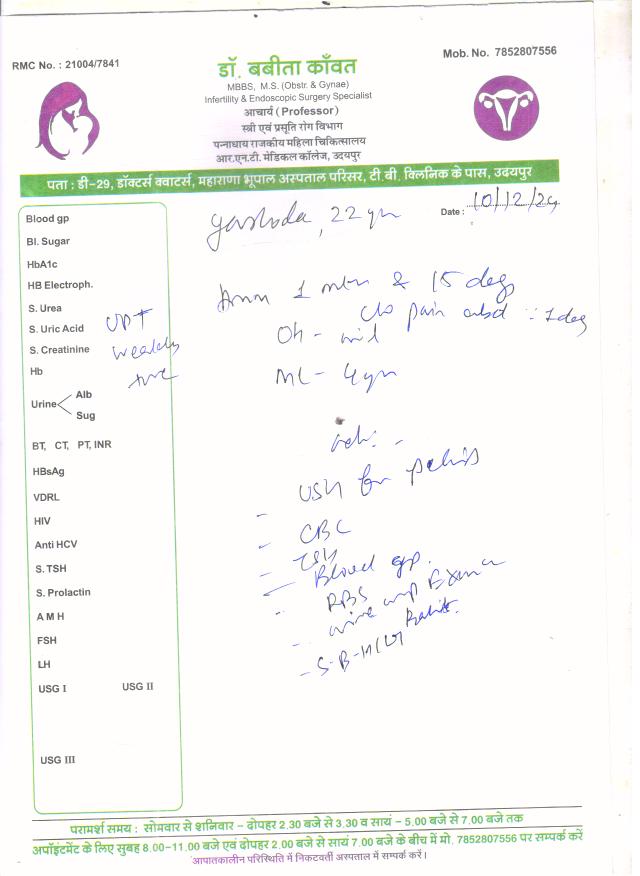 RMC No. : 21004/7841
Mob. No. 7852807556
डॉ. बबीता काँवत
MBBS, M.S. (Obstr. & Gynae)
Infertility & Endoscopic Surgery Specialist
आचार्य (Professor)
स्त्री एवं प्रसूति रोग विभाग
पन्नाधाय राजकीय महिला चिकित्सालय
आर.एन.टी. मेडिकल कॉलेज, उदयपुर
पता : डी-29, डॉक्टर्स क्वाटर्स, महाराणा भूपाल अस्पताल परिसर, टी.बी. क्लिनिक के पास, उदयपुर
Date : 10/12/24
Yashoda, 22 yr
Blood gp
Bl. Sugar
HbA1c
HB Electroph.
S. Urea
S. Uric Acid
S. Creatinine
Hb
Urine
Alb
Sug
BT, CT, PT, INR
HBsAg
VDRL
HIV
Anti HCV
S. TSH
S. Prolactin
A M H
FSH
LH
USG I USG II
USG III
UPT
weakly
+ve
1 mth & 15 days
c/o pain abd : 1 day
OH - nil
ML - 4 yr
Adv. -
- USG for pelvis
- CBC
- TSH
- Blood gp.
- RBS
- Urine Exam
- S-B-HCG
परामर्श समय : सोमवार से शनिवार – दोपहर 2.30 बजे से 3.30 व सायं – 5.00 बजे से 7.00 बजे तक
अपॉइंटमेंट के लिए सुबह 8.00–11.00 बजे एवं दोपहर 2.00 बजे से सायं 7.00 बजे के बीच में मो. 7852807556 पर सम्पर्क करें
आपातकालीन परिस्थिति में निकटवर्ती अस्पताल में सम्पर्क करें।